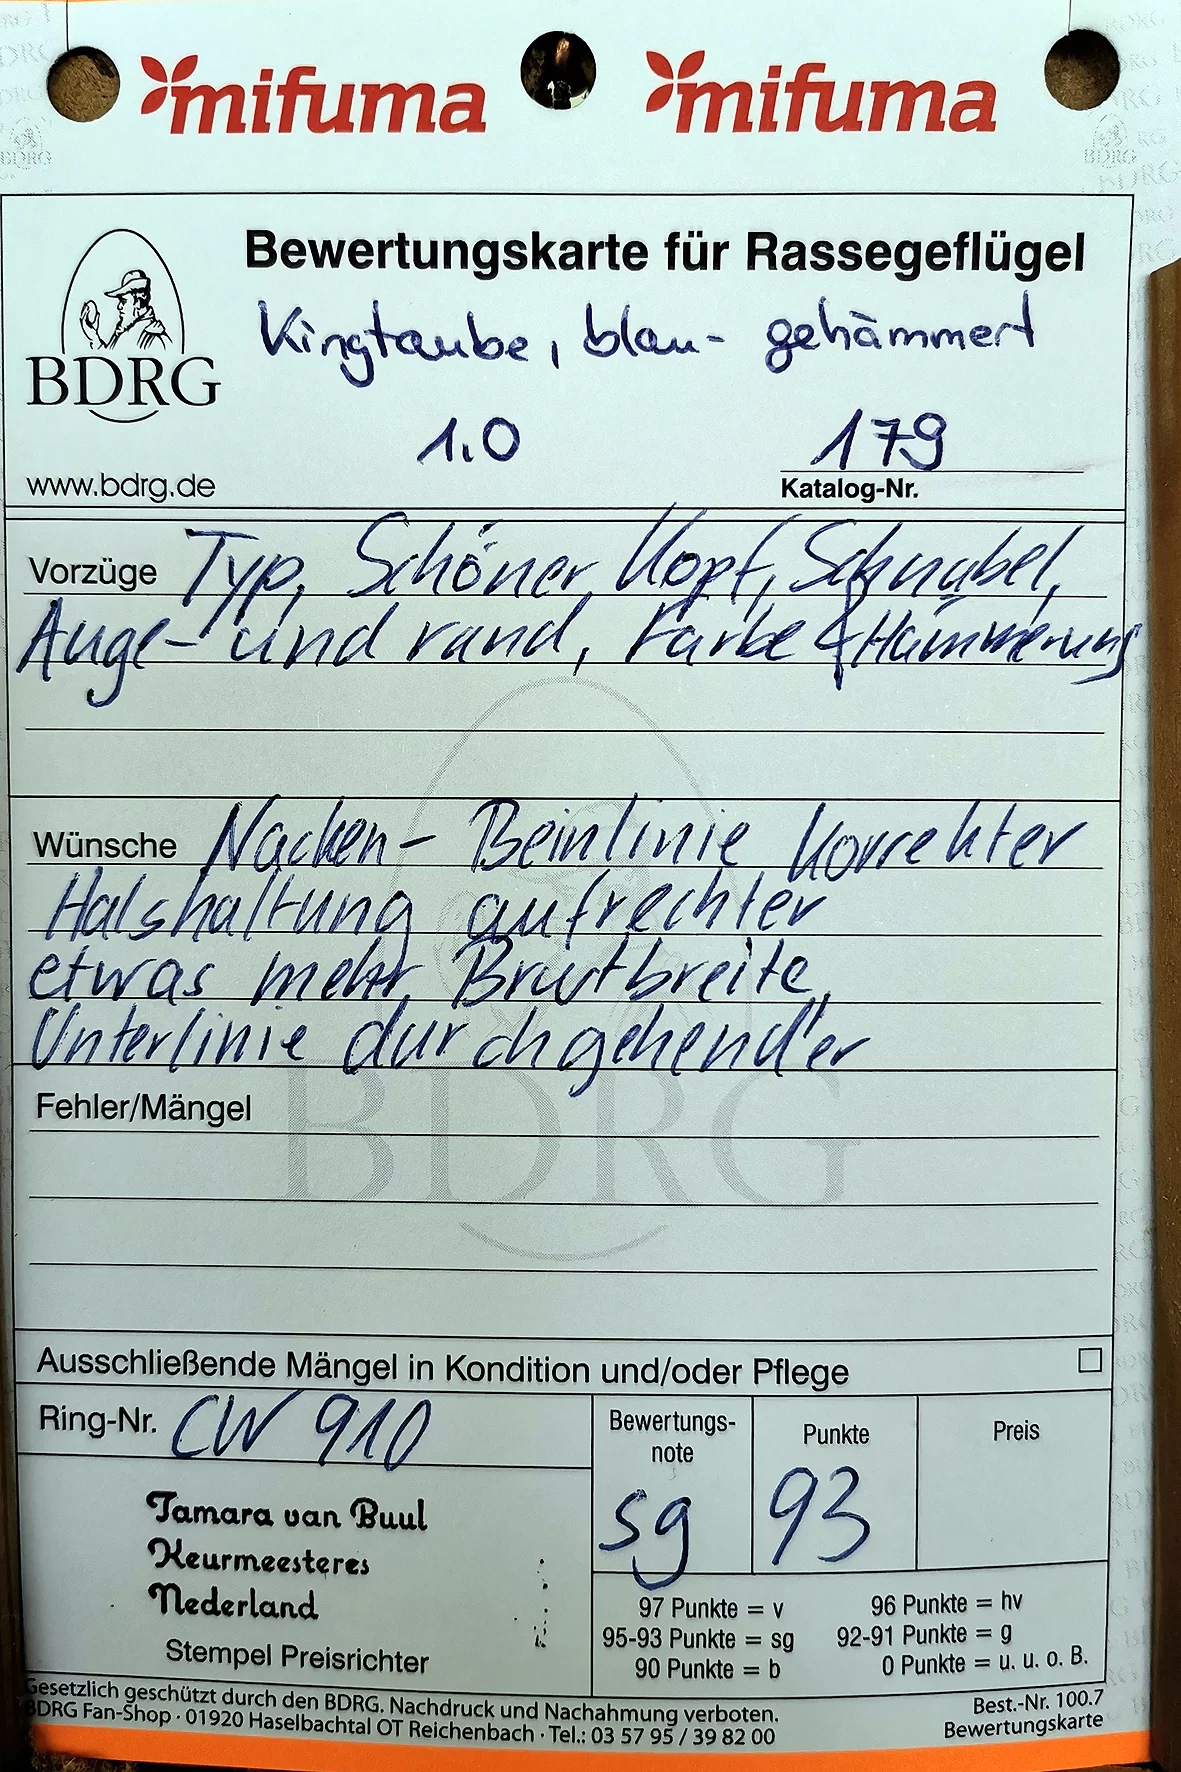 mifuma mifuma
Bewertungskarte für Rassegeflügel
BDRG
Kingtaube, blau- gehämmert
1.0 179
www.bdrg.de Katalog-Nr.
Vorzüge Typ, Schöner Kopf, Schnabel,
Auge- und rand, Farbe & Hämmerung
Wünsche Nacken- Beinlinie korrekter
Halshaltung aufrechter
etwas mehr Brustbreite,
Unterlinie durchgehender
BDRG
Fehler/Mängel
Ausschließende Mängel in Kondition und/oder Pflege
Ring-Nr. CW 910
Bewertungs-
note
Punkte
Preis
sg 93
Tamara van Buul
Keurmeesteres
Nederland
Stempel Preisrichter
97 Punkte = v 96 Punkte = hv
95-93 Punkte = sg 92-91 Punkte = g
90 Punkte = b 0 Punkte = u. u. o. B.
Gesetzlich geschützt durch den BDRG. Nachdruck und Nachahmung verboten.
BDRG Fan-Shop · 01920 Haselbachtal OT Reichenbach · Tel.: 03 57 95 / 39 82 00
Best.-Nr. 100.7
Bewertungskarte